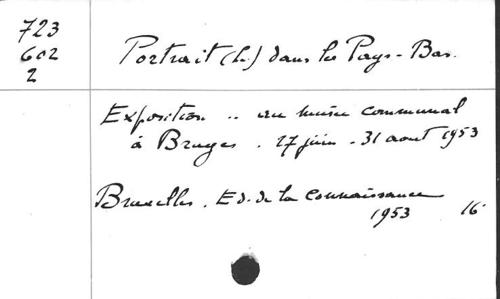 723
602
2
Portrait (Le) dans les Pays-Bas.
Exposition .. au musée communal
à Bruges . 27 juin - 31 août 1953
Bruxelles. Ed. de la Connaissance
1953 16°